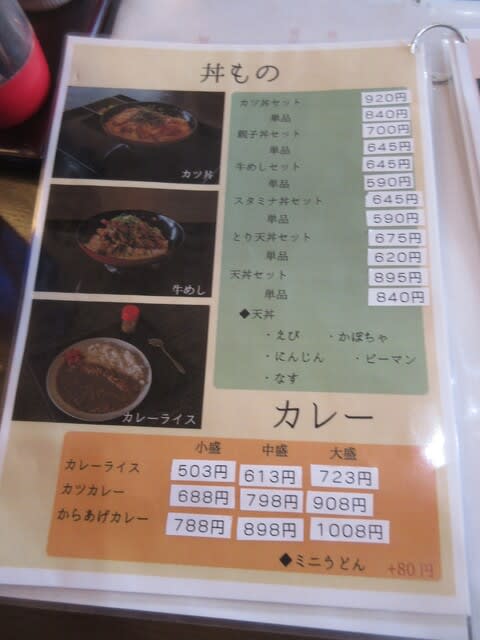 丼もの
カツ丼
牛めし
カレーライス
カツ丼セット 920円
単品 840円
親子丼セット 700円
単品 645円
牛めしセット 645円
単品 590円
スタミナ丼セット 645円
単品 590円
とり天丼セット 675円
単品 620円
天丼セット 895円
単品 840円
◆天丼
・えび ・かぼちゃ
・にんじん ・ピーマン
・なす
カレー
小盛 中盛 大盛
カレーライス 503円 613円 723円
カツカレー 688円 798円 908円
からあげカレー 788円 898円 1008円
◆ミニうどん +80円